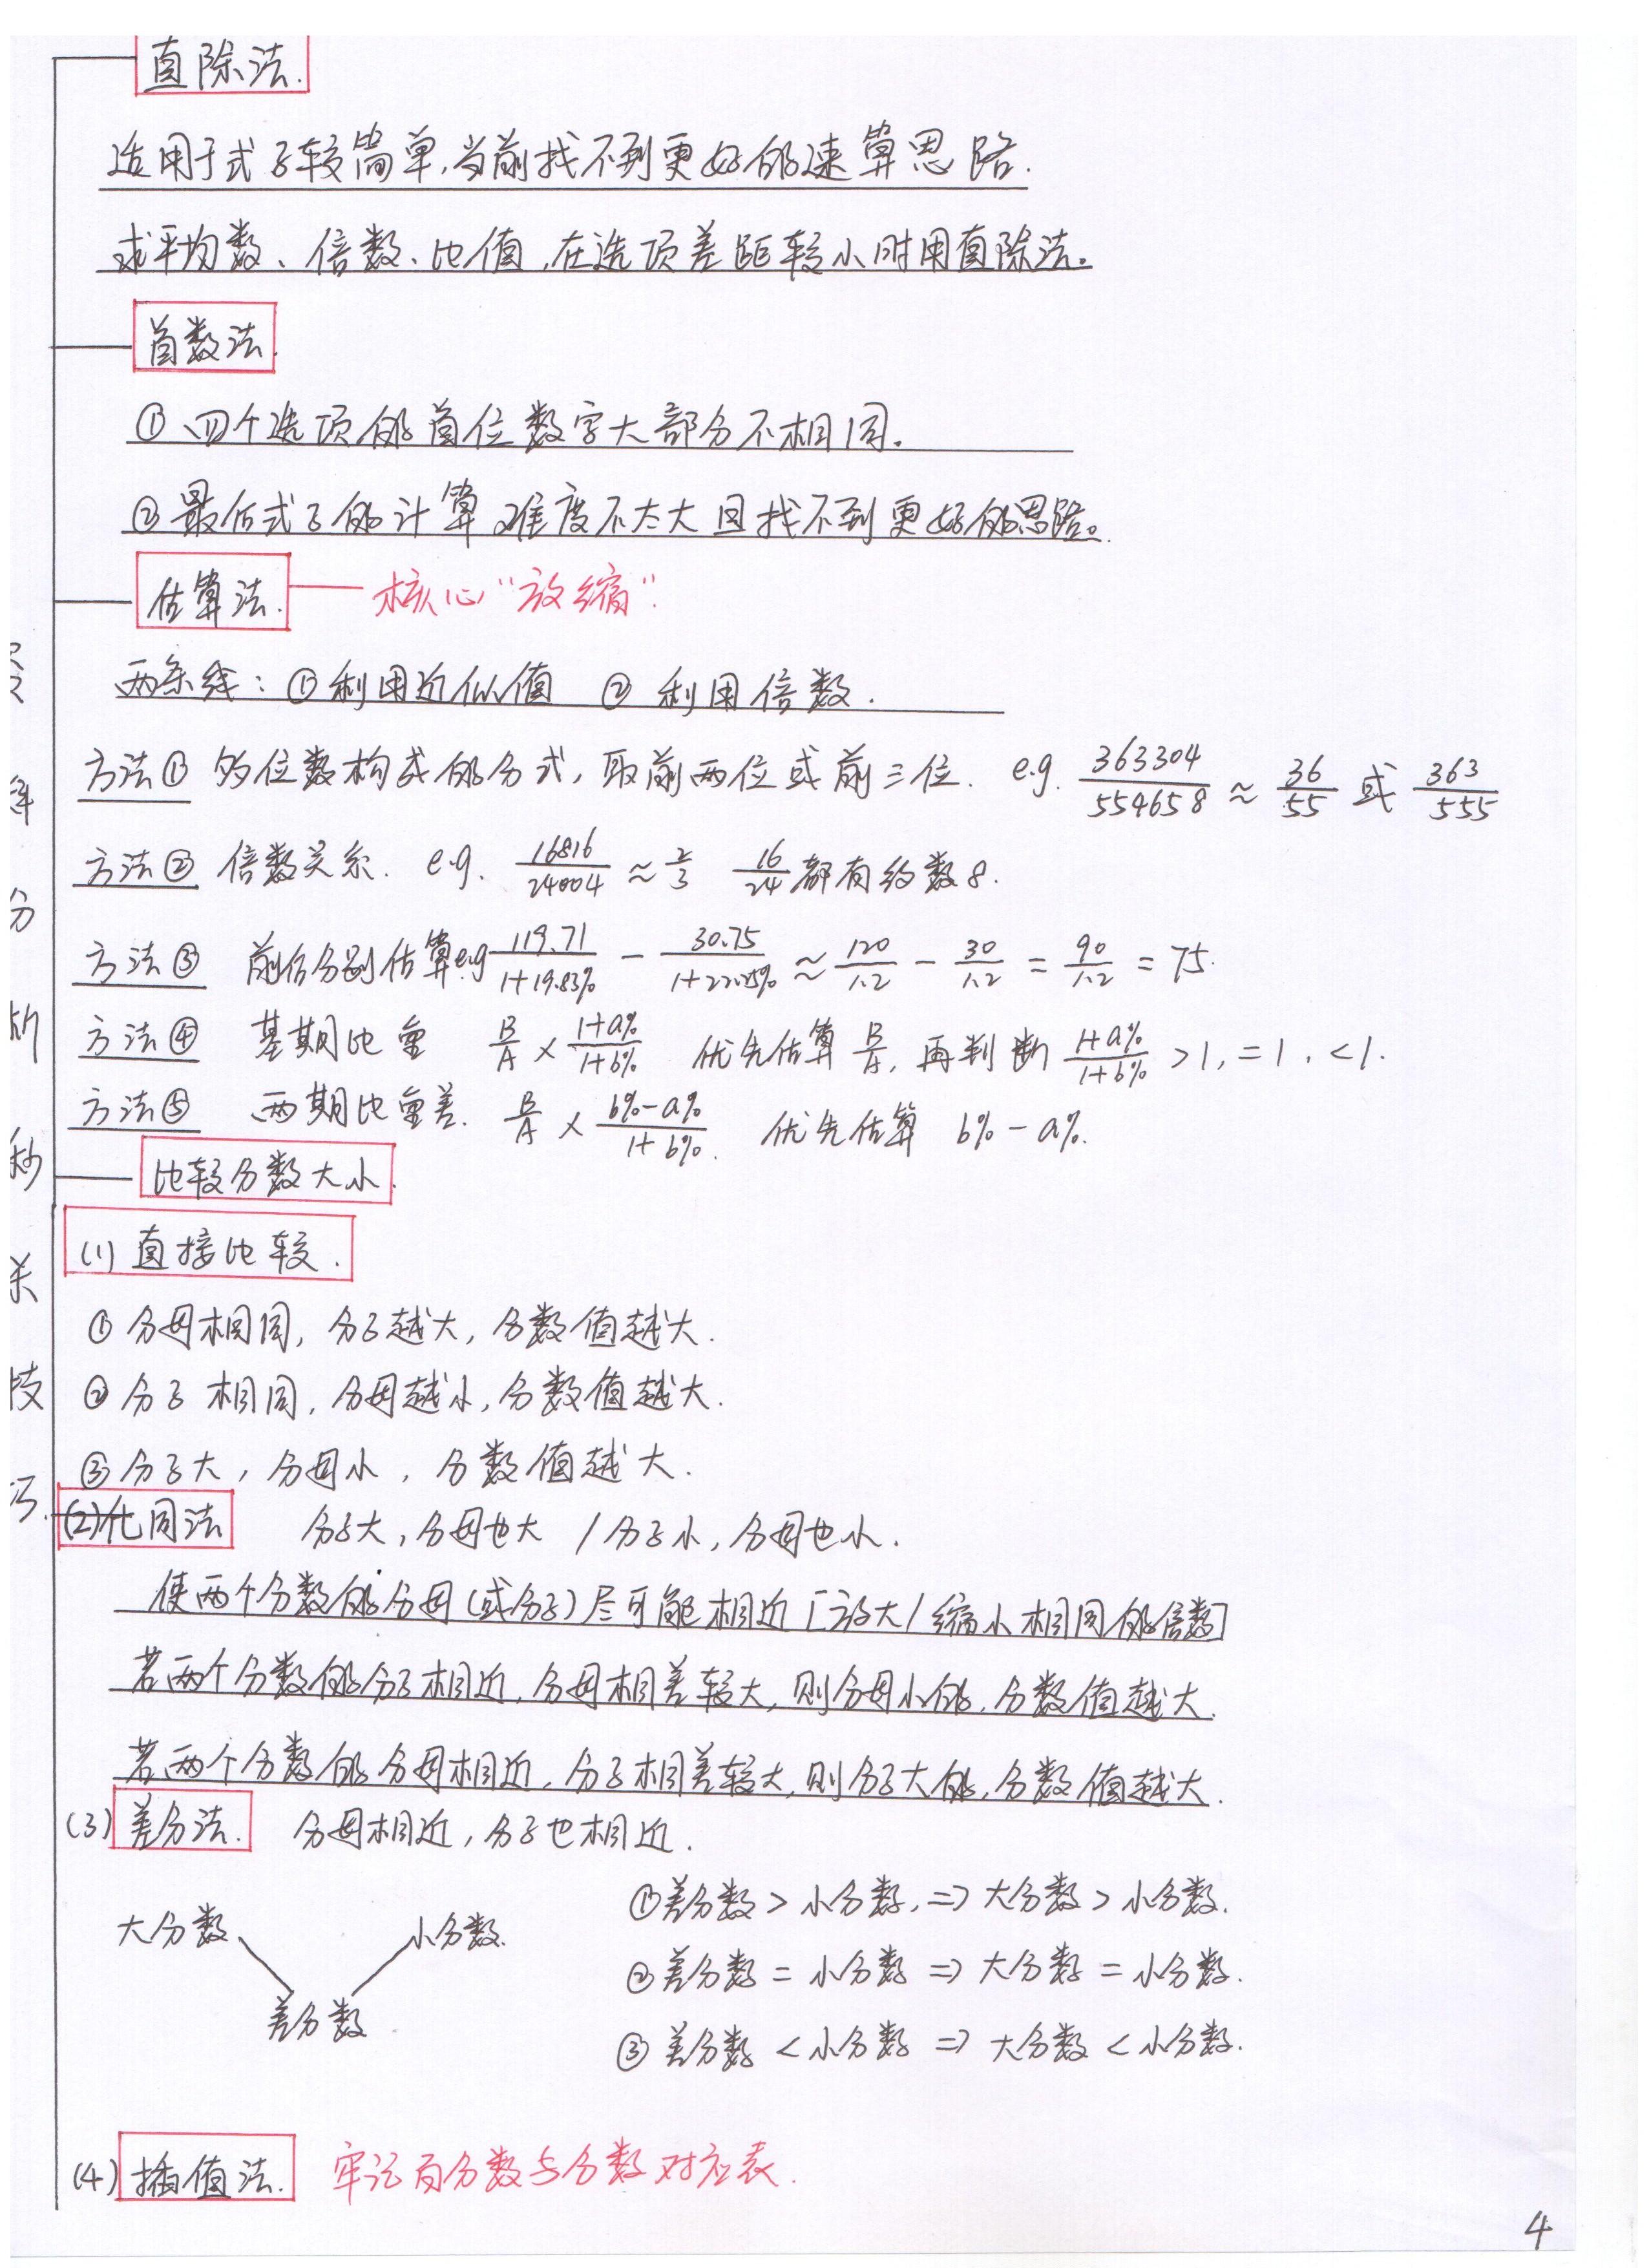 直除法.
适用于式子较简单,当前找不到更好的速算思路.
求平均数、倍数、比值,在选项差距较小时用直除法。
首数法.
① 四个选项的首位数字大部分不相同。
② 最后式子的计算难度不太大且找不到更好的思路。
估算法. 核心“放缩”.
两条线: ① 利用近似值 ② 利用倍数.
方法① 多位数构成的分式, 取前两位或前三位. e.g. 363304/554658 ≈ 36/55 或 363/555
方法② 倍数关系. e.g. 16816/24004 ≈ 2/3 16/24 都有约数8.
方法③ 前后分别估算 e.g 119.71/1+19.83% − 30.75/1+22.25% ≈ 120/1.2 − 30/1.2 = 90/1.2 = 75.
方法④ 基期比重 B/A × 1+a%/1+b% 优先估算 B/A, 再判断 1+a%/1+b% >1, =1, <1.
方法⑤ 两期比重差. B/A × b%-a%/1+b%. 优先估算 b%-a%.
比较分数大小.
(1) 直接比较.
① 分母相同, 分子越大, 分数值越大.
② 分子相同, 分母越小, 分数值越大.
③ 分子大, 分母小, 分数值越大.
(2) 化同法 分子大, 分母也大 / 分子小, 分母也小.
使两个分数的分母(或分子)尽可能相近[放大/缩小相同的倍数]
若两个分数的分子相近, 分母相差较大, 则分母小的, 分数值越大.
若两个分数的分母相近, 分子相差较大, 则分子大的, 分数值越大.
(3) 差分法. 分母相近, 分子也相近.
大分数 小分数.
差分数
① 差分数 > 小分数, => 大分数 > 小分数.
② 差分数 = 小分数 => 大分数 = 小分数.
③ 差分数 < 小分数 => 大分数 < 小分数.
(4) 插值法. 牢记百分数与分数对应表.
4